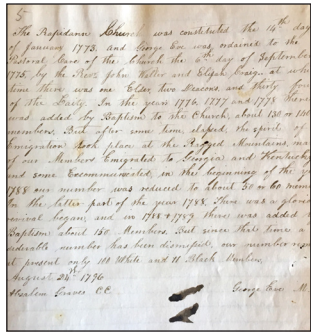 5
The Rapidann Church was constituted the 14th day
of January 1773, and George Eve was ordained to the
Pastoral Care of the Church the 5th day of September
1775, by the Revd John Waller and Elijah Craig, at which
time there was one Elder, two Deacons, and thirty four
of the Laity. In the year 1776, 1777 and 1778 there
was added by Baptism to the Church, about 130 or 140
members. But after some time elapsed, the spirit of
Emigration took place at the Ragged Mountains, ma
of our Members Emigrated to Georgia and Kentucky
and some Excommunicated, in the beginning of the y
1788 our number was reduced to about 50 or 60 mem
In the latter part of the year 1788. There was a glorio
revival began, and in 1788 & 1789 there was added b
Baptism about 150 Members. But since that time a
siderable number has been dismissed, our number
at present only 100 White and 11 Black Members.
August 24th 1796
Absalem Graves C.C. George Eve M